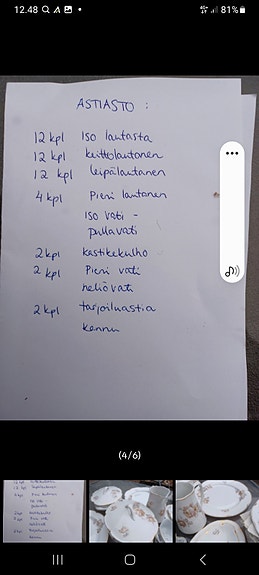 12.48
81%
ASTIASTO :
12 kpl Iso lautasta
12 kpl keittolautanen
12 kpl leipälautanen
4 kpl Pieni lautanen
Iso vati -
pullavati
2 kpl kastikekulho
2 kpl Pieni vati
neliövati
2 kpl tarjoiluastia
kannu
(4/6)